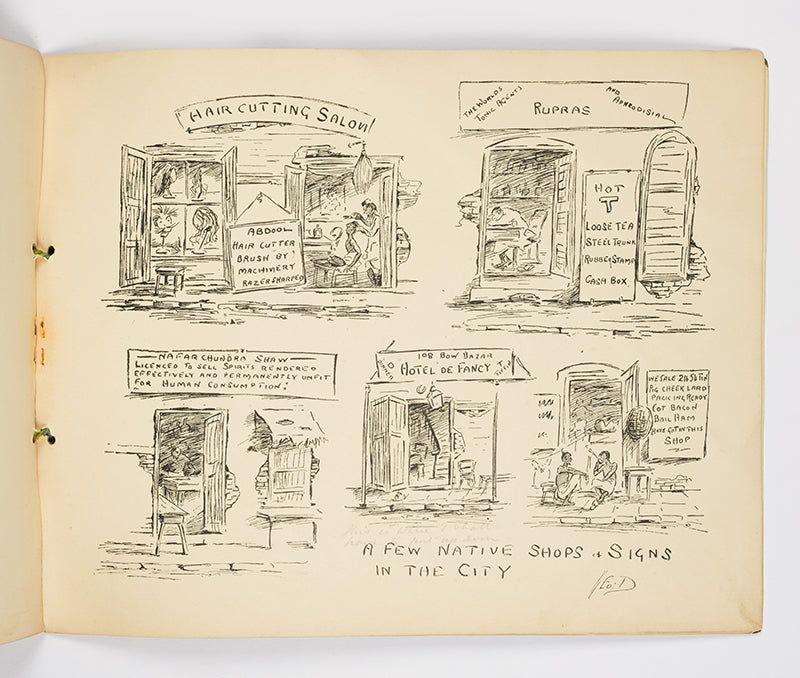 HAIR CUTTING SALOU
ABDOOL
HAIR CUTTER
BRUSH BY
MACHINERY
RAZER SHARPED
THE WORLDS
TONIC AGENTS
RUPRAS
AND
APHRODISIAL
HOT
T
LOOSE TEA
STEEL TRUNK
RUBBER STAMP
CASH BOX
NAFAR CHUNDRA SHAW
LICENCED TO SELL SPIRITS RENDERED
EFFECTIVELY AND PERMANENTLY UNFIT
FOR HUMAN CONSUMPTION.
108 BOW BAZAR
HOTEL DE FANCY
DINNER
TIFFIN
WE SALE
PIG CHEEK LARD
PACKING READY
COT BACON
BOIL HAM
HAVE GOT IN THIS
SHOP
A FEW NATIVE SHOPS & SIGNS
IN THE CITY